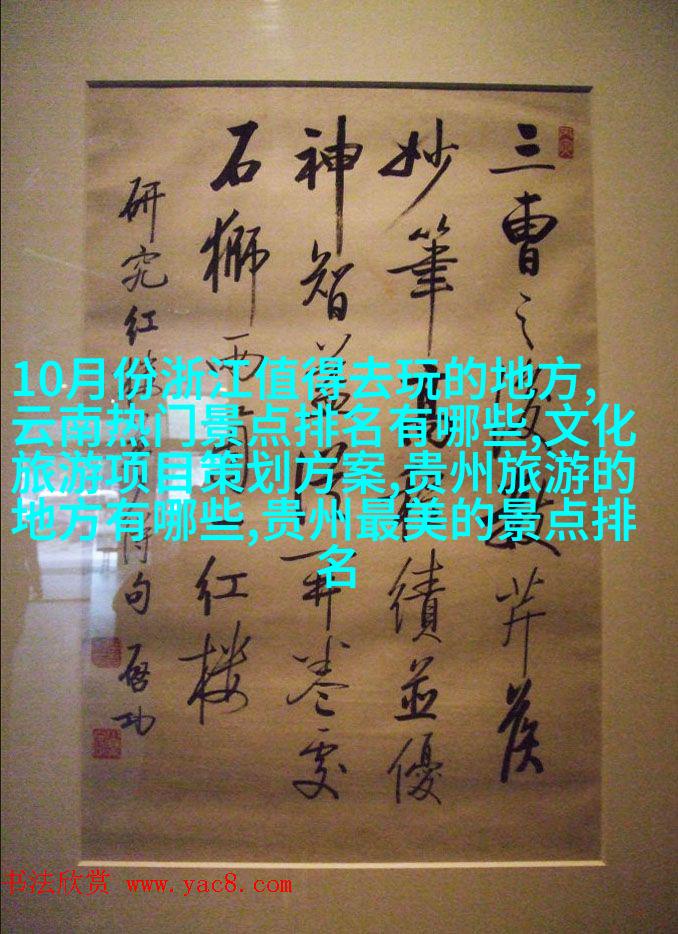 三曹之後數芹侯
妙筆高程績並優
神智益從開卷處
石獅兩箇一红楼
研究红楼梦句 啓功
10月份浙江值得去玩的地方,
云南热门景点排名有哪些,文化
旅游项目策划方案,贵州旅游的
地方有哪些,贵州最美的景点排
名
书法欣赏 www.yac8.com